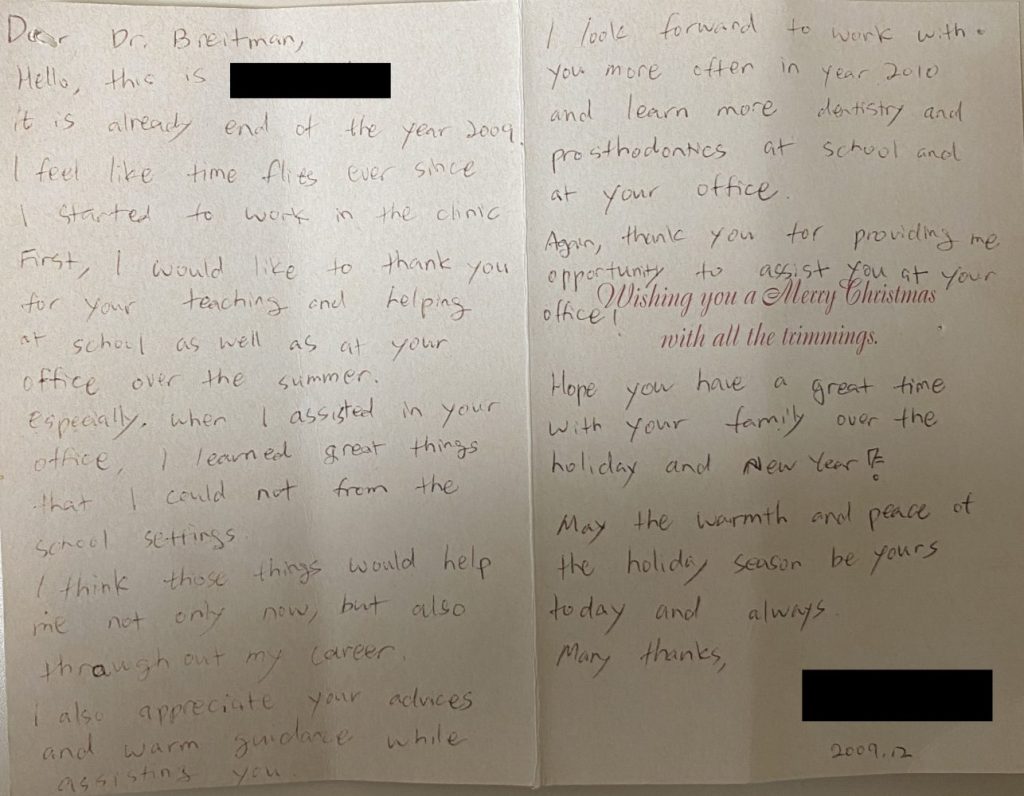 Dear Dr. Breitman,
Hello, this is
it is already end of the year 2009.
I feel like time flies ever since
I started to work in the clinic
First, I would like to thank you
for your teaching and helping
at school as well as at your
office over the summer.
especially, when I assisted in your
office, I learned great things
that I could not from the
school settings.
I think those things would help
me not only now, but also
throughout my career.
I also appreciate your advices
and warm guidance while
assisting you.
I look forward to work with
you more often in year 2010
and learn more dentistry and
prosthodontics at school and
at your office.
Again, thank you for providing me
opportunity to assist you at your
office!
Wishing you a Merry Christmas
with all the trimmings.
Hope you have a great time
with your family over the
holiday and New Year!
May the warmth and peace of
the holiday season be yours
today and always.
Many thanks,
2009.12